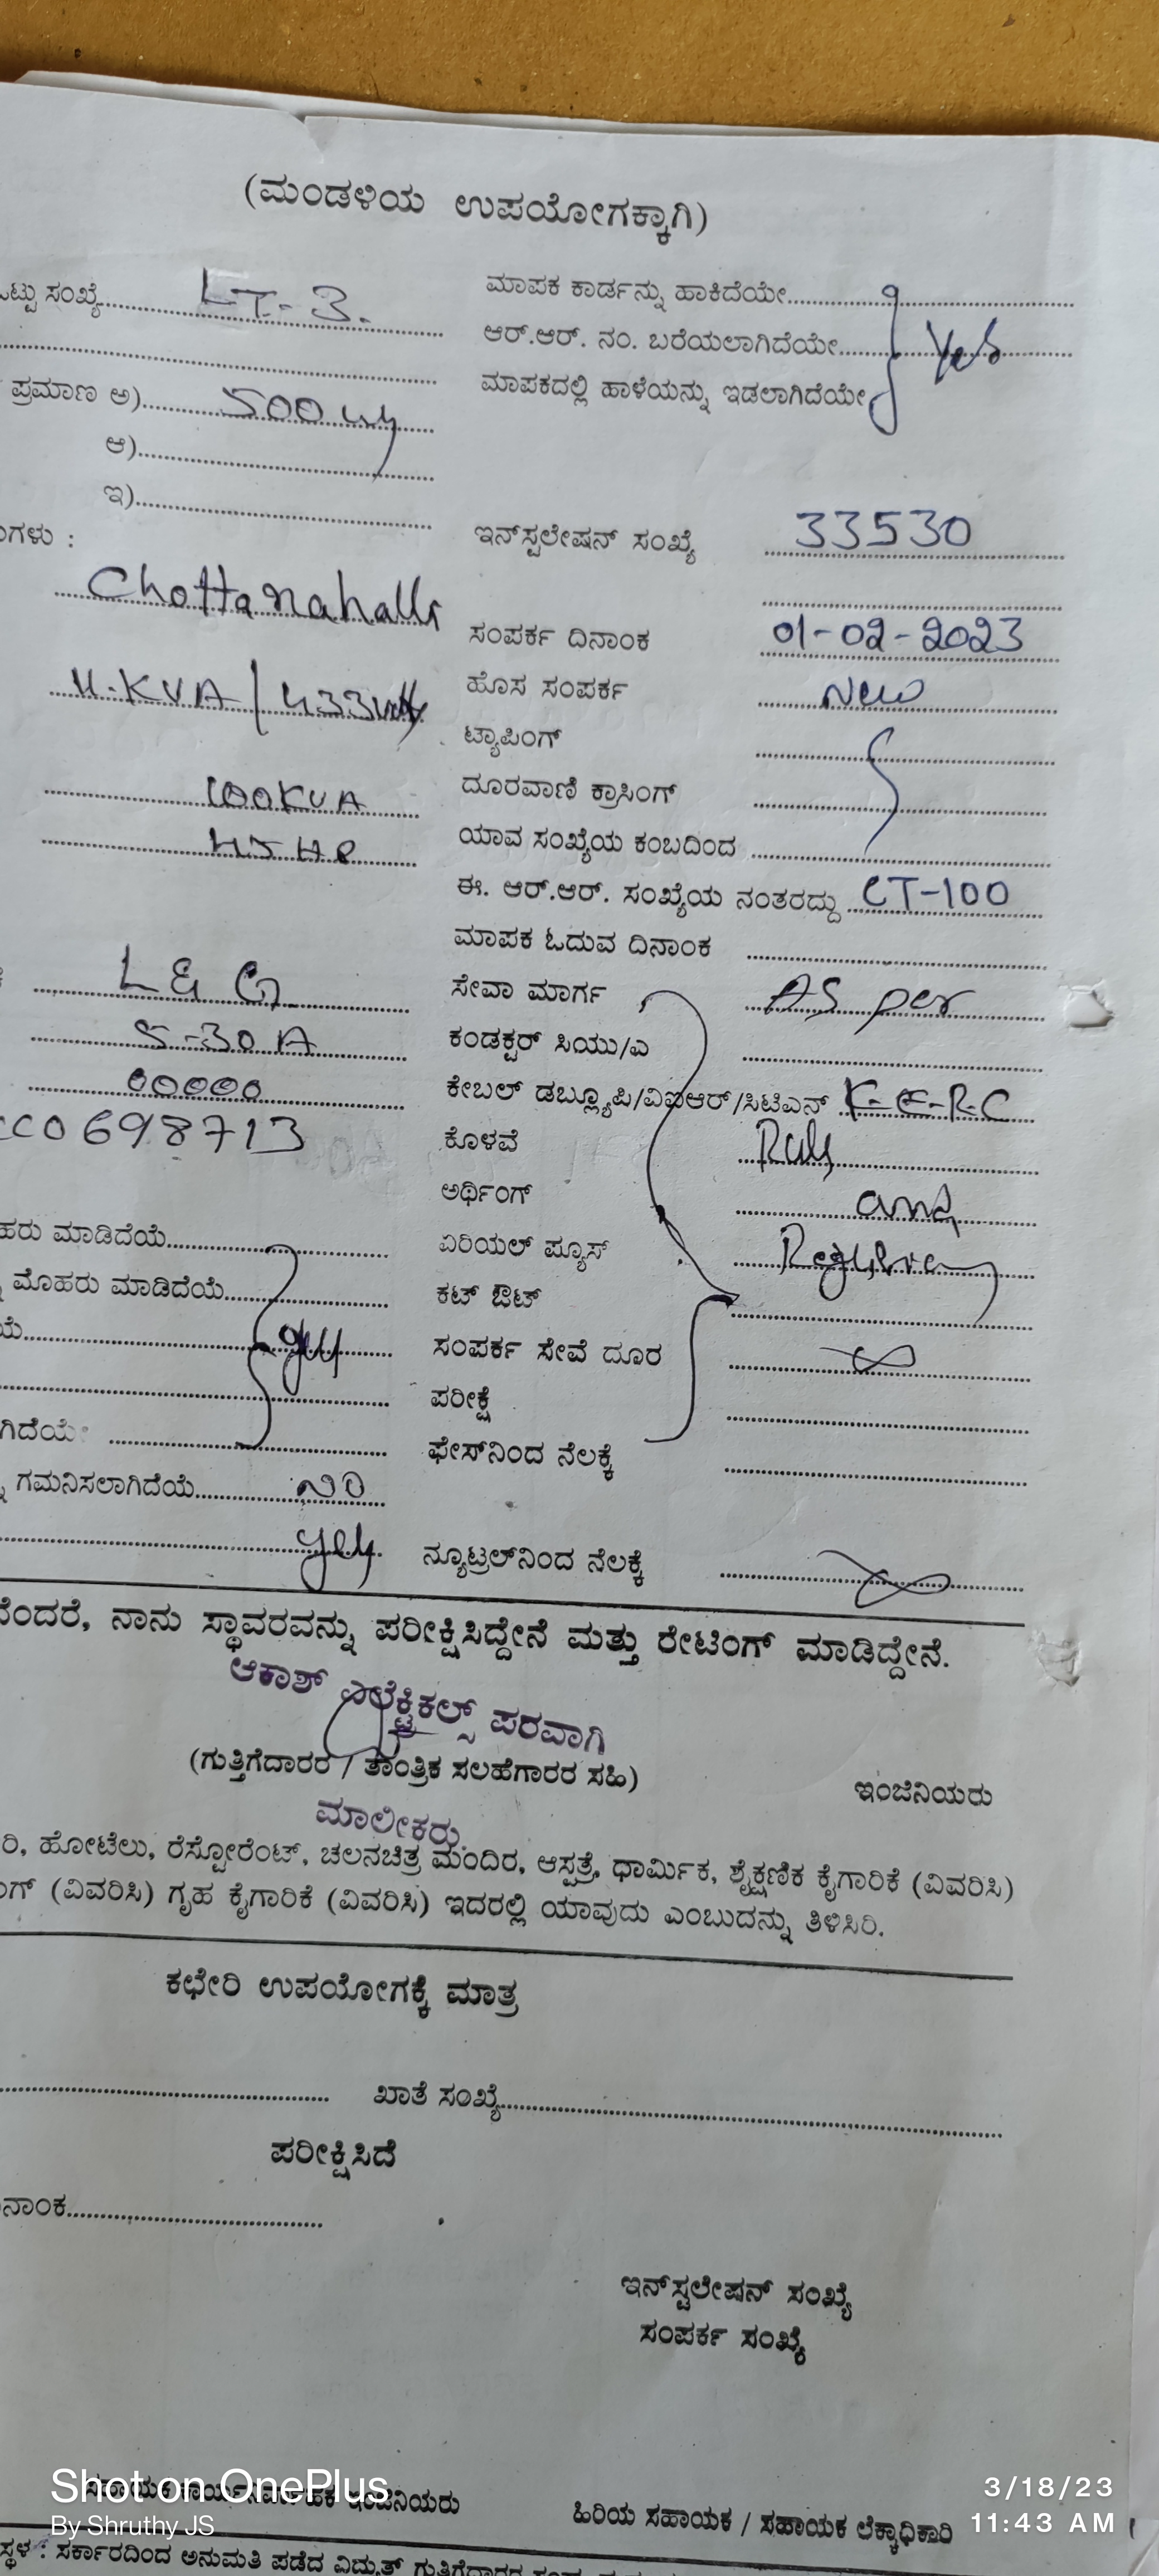 (ಮಂಡಳಿಯ ಉಪಯೋಗಕ್ಕಾಗಿ)
ಒಟ್ಟು ಸಂಖ್ಯೆ LT-3.
ಪ್ರಮಾಣ ಅ) 500
ಆ)
ಇ)
Chottanahalli
100KVA
L & G
5-30A
00000
698713
ಮಾಡಿದೆಯೆ
ಮೊಹರು ಮಾಡಿದೆಯೆ
yes
ಗಮನಿಸಲಾಗಿದೆಯೆ NO
yes
ಮಾಪಕ ಕಾರ್ಡನ್ನು ಹಾಕಿದೆಯೇ
ಆರ್.ಆರ್. ನಂ. ಬರೆಯಲಾಗಿದೆಯೇ Yes
ಮಾಪಕದಲ್ಲಿ ಹಾಳೆಯನ್ನು ಇಡಲಾಗಿದೆಯೇ
ಇನ್‌ಸ್ಟಲೇಷನ್ ಸಂಖ್ಯೆ 33530
ಸಂಪರ್ಕ ದಿನಾಂಕ 01-02-2023
ಹೊಸ ಸಂಪರ್ಕ New
ಟ್ಯಾಪಿಂಗ್
ದೂರವಾಣಿ ಕ್ರಾಸಿಂಗ್
ಯಾವ ಸಂಖ್ಯೆಯ ಕಂಬದಿಂದ
ಈ. ಆರ್.ಆರ್. ಸಂಖ್ಯೆಯ ನಂತರದ್ದು CT-100
ಮಾಪಕ ಓದುವ ದಿನಾಂಕ
ಸೇವಾ ಮಾರ್ಗ As per
ಕಂಡಕ್ಟರ್ ಸಿಯು/ಎ
ಕೇಬಲ್ ಡಬ್ಲ್ಯೂಪಿ/ವಿಐಆರ್/ಸಿಟಿಎಸ್ K-E-R-C
ಕೊಳವೆ
ಅರ್ಥಿಂಗ್ and
ಏರಿಯಲ್ ಫ್ಯೂಸ್
ಕಟ್ ಔಟ್
ಸಂಪರ್ಕ ಸೇವೆ ದೂರ
ಪರೀಕ್ಷೆ
ಫೇಸ್‌ನಿಂದ ನೆಲಕ್ಕೆ
ನ್ಯೂಟ್ರಲ್‌ನಿಂದ ನೆಲಕ್ಕೆ
ನೆಂದರೆ, ನಾನು ಸ್ಥಾವರವನ್ನು ಪರೀಕ್ಷಿಸಿದ್ದೇನೆ ಮತ್ತು ರೇಟಿಂಗ್ ಮಾಡಿದ್ದೇನೆ.
ಆಕಾಶ್ ಎಲೆಕ್ಟ್ರಿಕಲ್ಸ್ ಪರವಾಗಿ
(ಗುತ್ತಿಗೆದಾರರ / ತಾಂತ್ರಿಕ ಸಲಹೆಗಾರರ ಸಹಿ)
ಇಂಜಿನಿಯರು
ಮಾಲೀಕರು.
ರಿ, ಹೋಟೆಲು, ರೆಸ್ಟೋರೆಂಟ್, ಚಲನಚಿತ್ರ ಮಂದಿರ, ಆಸ್ಪತ್ರೆ, ಧಾರ್ಮಿಕ, ಶೈಕ್ಷಣಿಕ ಕೈಗಾರಿಕೆ (ವಿವರಿಸಿ)
(ವಿವರಿಸಿ) ಗೃಹ ಕೈಗಾರಿಕೆ (ವಿವರಿಸಿ) ಇದರಲ್ಲಿ ಯಾವುದು ಎಂಬುದನ್ನು ತಿಳಿಸಿರಿ.
ಕಛೇರಿ ಉಪಯೋಗಕ್ಕೆ ಮಾತ್ರ
ಖಾತೆ ಸಂಖ್ಯೆ
ಪರೀಕ್ಷಿಸಿದೆ
ನಾಂಕ
ಇನ್‌ಸ್ಟಲೇಷನ್ ಸಂಖ್ಯೆ
ಸಂಪರ್ಕ ಸಂಖ್ಯೆ
ಇಂಜಿನಿಯರು
ಹಿರಿಯ ಸಹಾಯಕ / ಸಹಾಯಕ ಲೆಕ್ಕಾಧಿಕಾರಿ
Shot on OnePlus
By Shruthy JS
3/18/23
11:43 AM
ಸ್ಥಳ : ಸರ್ಕಾರದಿಂದ ಅನುಮತಿ ಪಡೆದ ವಿದ್ಯುತ್ ಗುತ್ತಿಗೆದಾರರ